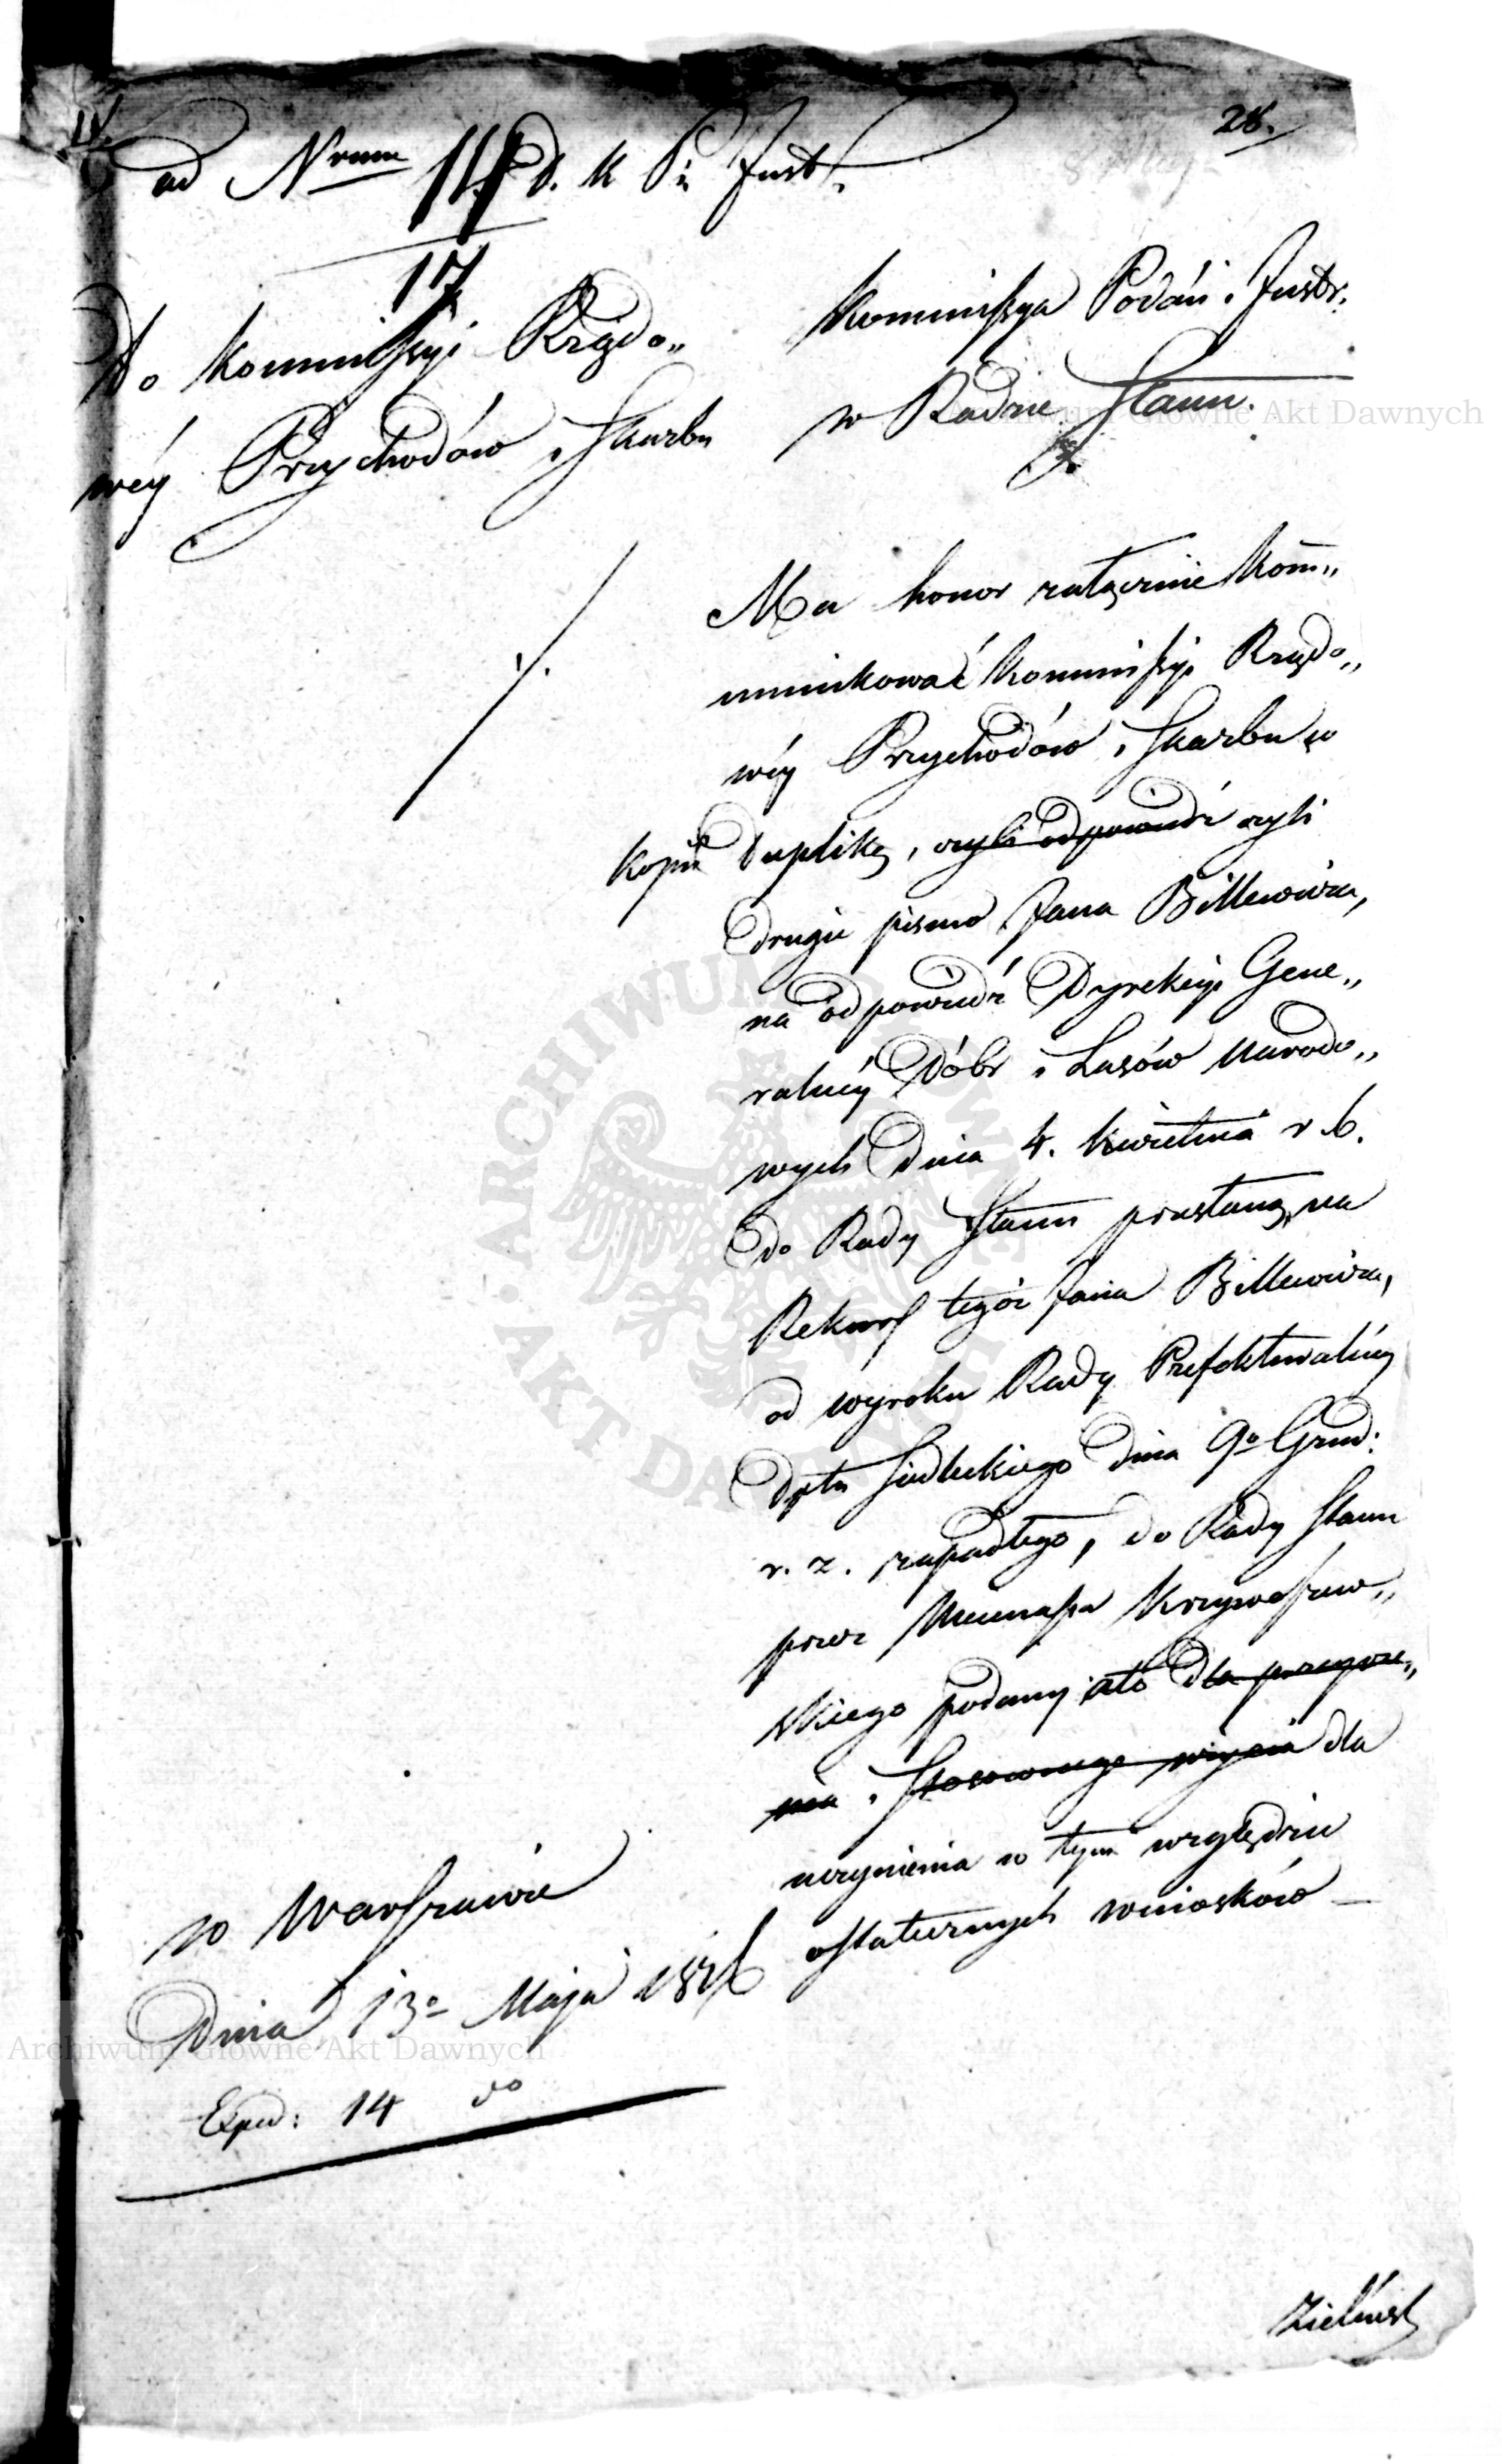 28.
ad Nrum 111 d. K P i Inst.
17
Do Kommissyi Rządo„
wéy Przychodów i Skarbu
Kommissya Podań i Instr.
w Radzie Stanu.
Ma honor załącznie Kom„
munikować Kommissyi Rządo„
wéy Przychodów i Skarbu w
kopii Duplikę, czyli odpowiedź czyli
drugie pismo Jana Billewicza,
na odpowiedź Dyrekcyi Gene„
ralnéy Dóbr i Lasów Narodo„
wych dnia 4. Kwietnia r. b.
do Rady Stanu przesłaną, na
Rekurs tegoż Jana Billewicza,
od wyroku Rady Prefekturalnéy
Dptu Siedleckiego dnia 9o Grud:
r. z. zapadłego, do Rady Stanu
przez Mecenasa Krzywoszew„
skiego podany, a to dla przeyrze„
nia i stosownego użycia dla
uczynienia w tym względzie
ostatecznych wniosków —
w Warszawie
Dnia 13o Maja 1816
Exped: 14 do
Zieliński
Archiwum Główne Akt Dawnych
Archiwum Główne Akt Dawnych
ARCHIWUM GŁÓWNE
AKT DAWNYCH